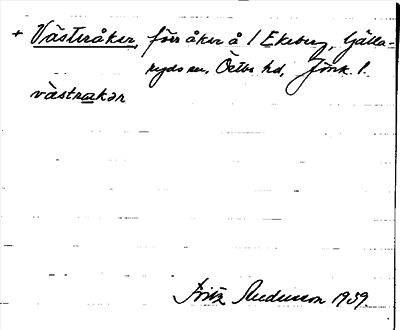 + Västeråker, förr åker å 1 Ekeberg, Gälla-
ryds sn, Östbo hd, Jönk. l.
västrakər
Fritz Andersson 1939.